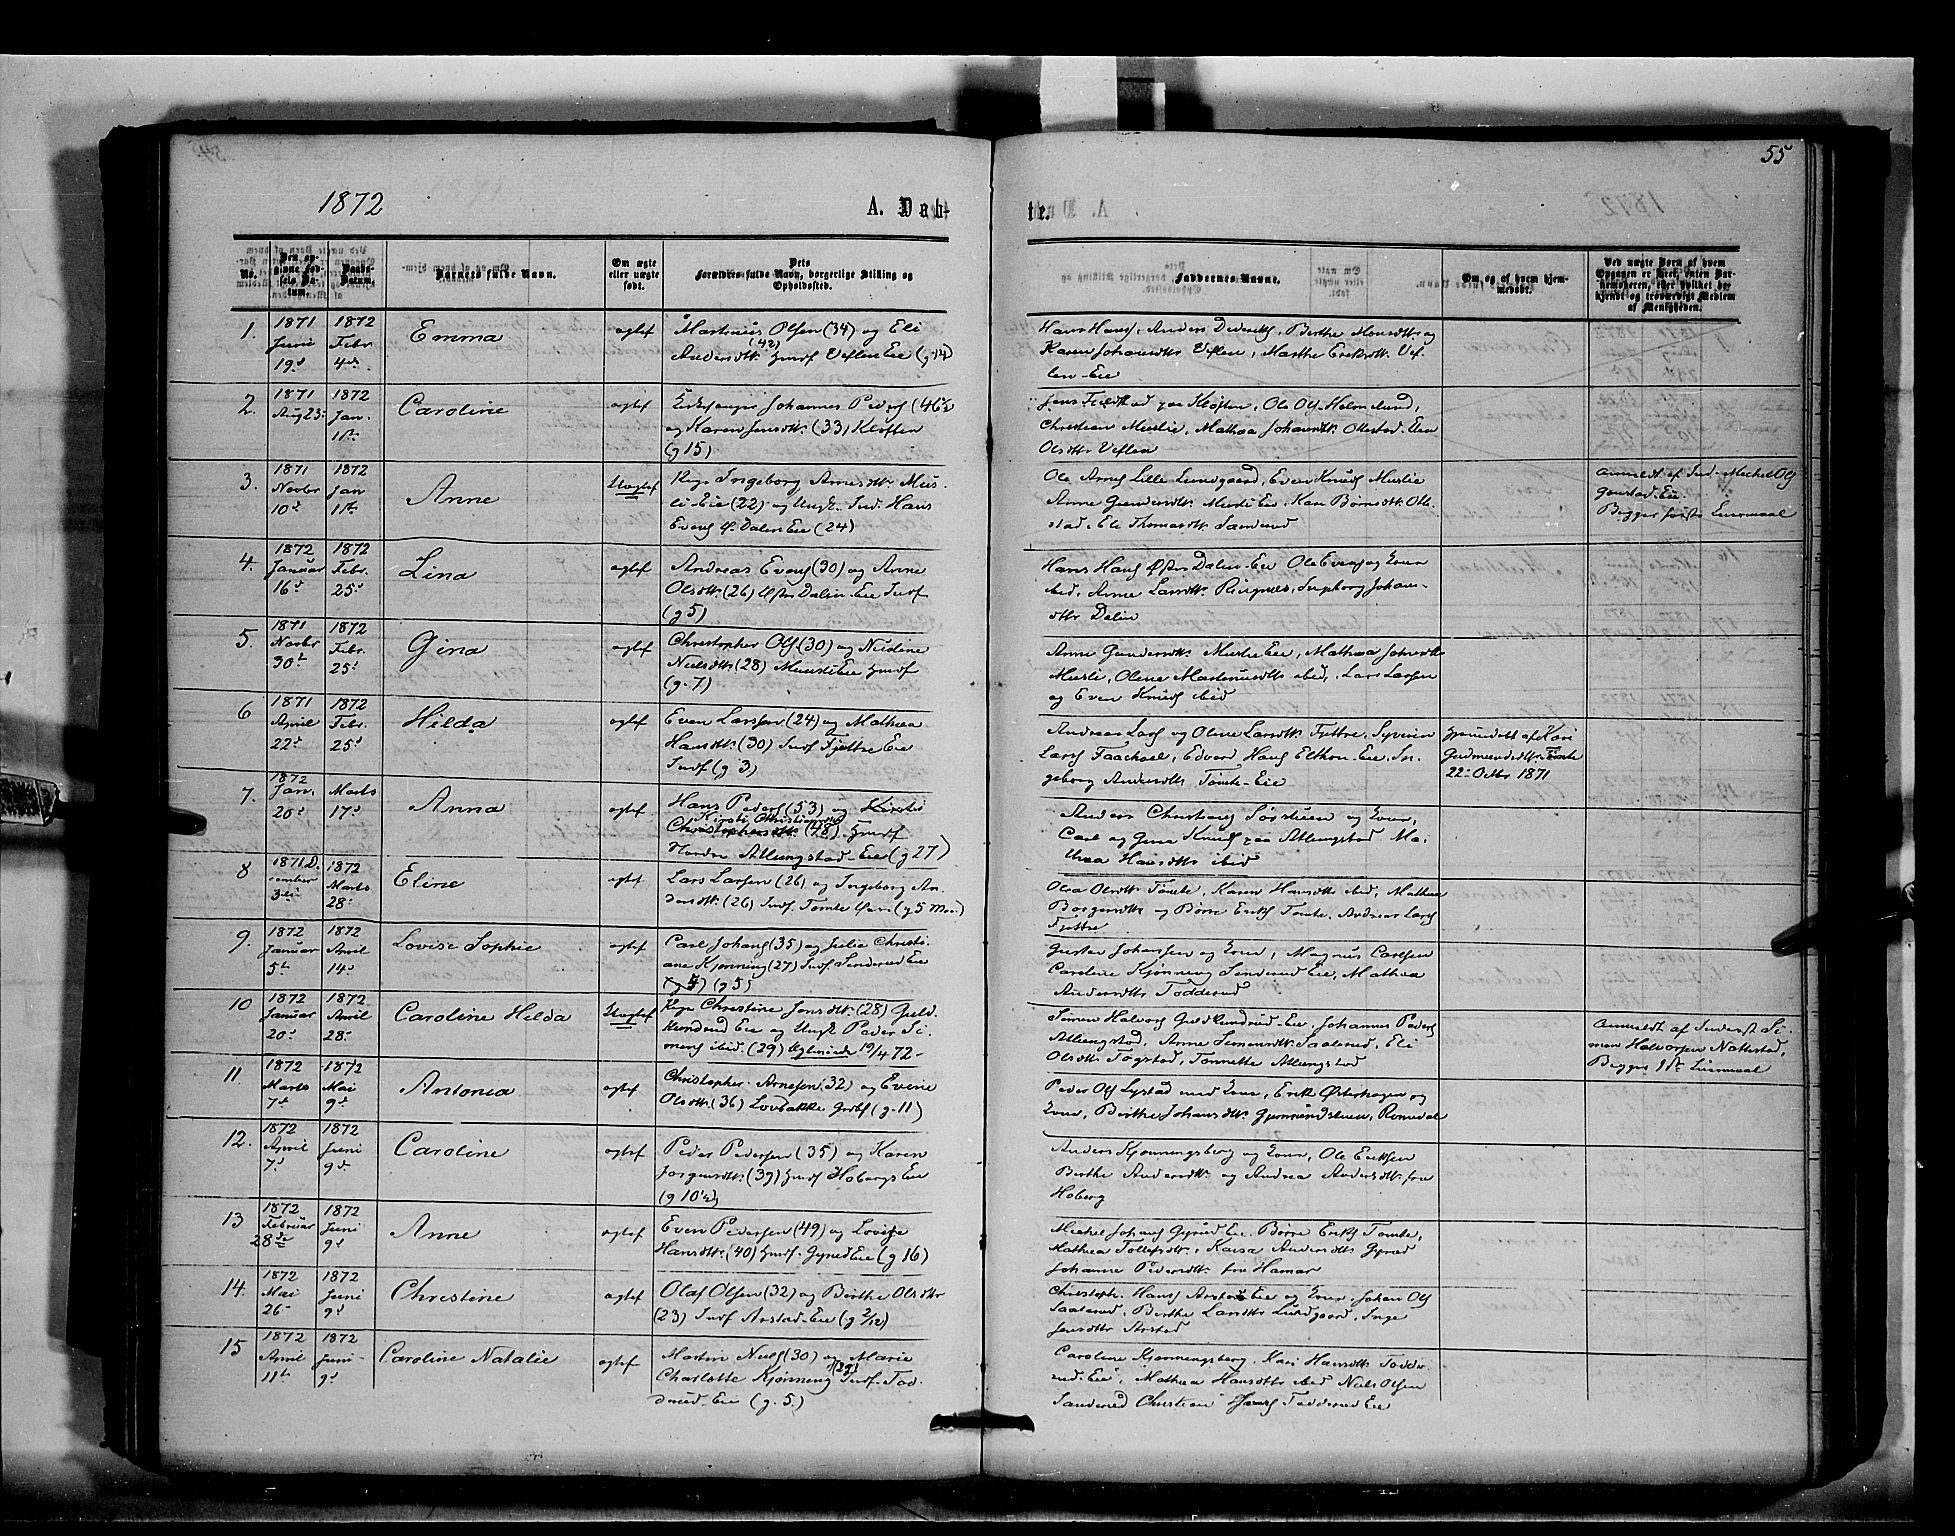 55
1872
A. Døb-
te.
No.
Den opgivne Fødsels Datum.
Daabs-Datum.
Barnets fulde Navn.
Om ægte eller uægte født.
Dets Forældres fulde Navn, borgerlige Stilling og Opholdssted.
Faddernes Navne.
Om, og af hvem hjemmedøbt.
Ved uægte Børn af hvem Opgaven er skeet, enten Barnemoderen, eller hvilket bekjendt og troværdigt Medlem af Menigheden.
1.
1871 Juni 19d
1872 Febr 4d
Emma
ægtef
Martinus Olsen (34) og Eli
Andersdtr. (42) Huusf Veflen Eie (g 14)
Hans Hansf, Anders Diderikf, Berthe Hansdtr og
Karen Johansdtr Veflen, Marthe Eriksdtr. Vef-
len-Eie
2.
1871 Aug 23d
1872 Jan. 1ste
Caroline
ægtef
Kirkesanger Johannes Pedersf (46½
og Karen Jensdtr. (33) Kløften
(g 15)
Jens paa Kløften, Ole Olsf Holmelund,
Christian Muslie, Mathea Johansdtr. Ottestad,
Olsdtr Veflen
3.
1871 Novbr 10d
1872 Jan 1ste
Anne
Uægtef
Pige Ingeborg Arnesdtr. Mus-
li-Eie (22) og Ungk. Ind. Hans
Evensf Ø. Dalen Eie (24)
Ole Arnesf Lille Lundgaard, Even Knudsf Muslie
Anne Gundersdtr. Musli Eie, Kari Børresdtr. Otte-
stad, Eli Thomasdtr. Sandrud
Anmeldt af Ind. Mickel Olsf
Gaustad-Eie
Begges første Leiermaal
4.
1872 Januar 16d
1872 Febr. 25d
Lina
ægtef
Andreas Evensf (30) og Anne
Olsdtr. (26) Østre Dalen-Eie Indf
(g 5)
Hans Hansf Østre Dalen-Eie Ole Evensf og Kone
ibid, Anne Larsdtr. Ringnes, Ingeborg Johans-
dtr Dalen
5.
1871 Novbr 30te
1872 Febr. 25d
Gina
ægtef
Christopher Olsf (30) og Nicoline
Nielsdtr (28) Musli Eie Huusf
(g. 7)
Anne Gundersdtr. Muslie Eie, Mathea Johnsdtr
Muslie, Olene Martinusdtr ibid, Lars Larsen
og Even Knudsf ibid
6
1871 April 22d
1872 Febr. 25d
Hilda
ægtef
Even Larsen (24) og Mathea
Hansdtr. (30) Indf Fjettre Eie
Indf (g 3)
Andreas Larsf og Olene Larsdtr. Fjettre, Syverin
Larsf Faachoel, Edvard Hansf Elthon-Eie, In-
geborg Andersdtr. Tomte-Eie
Hjemdøbt af Kari
Gudmundsdtr. Tomte
22- Octbr 1871
7.
1872 Jan. 20d
Marts 17d
Anna
ægtef
Hans Pedersf (53) og Kirsti
Kirsti Christiansdtr
Christophersdtr. (48), Huusf
Nordre Atlungstad-Eie (g 27)
Anders Christiansf Sørstuen og Kone,
Carl og Gina Knudsf paa Atlungstad Ma-
thea Hansdtr ibid
8
1871 December 3die
1872 Marts 28d
Eline
ægtef
Lars Larsen (26) og Ingeborg An-
dersdtr. (26) Indf. Tomte Eie (g 5 Mdr.)
Olea Olsdtr. Tomte, Karen Hansdtr ibid, Mathea
Borgersdtr og Børre Eriksf Tomte, Andreas Larsf
Fjettre
9.
1872 Januar 5te
1872 April 14d
Lovise Sophie
ægtef
Carl Johansf (35) og Julie Christi-
ane Kjønning (27) Indf. Sinderud Eie
(g 5)
Gustav Johansen og Kone, Magnus Carlsen
Caroline Kjønning Sinderud Eie, Mathea
Andersdtr Todderud
10
1872 Januar 20d
1872 April 28d
Caroline Hilda
Uægtef
Pige Christine Jonsdtr. (28) Guld-
kundrud Eie og Ungk. Peder Si-
monsf ibid. (29) 19/4 72-
Simen Halvorsf Guldkundrud Eie, Johannes Pedersf
Atlungstad, Anne Simensdtr. Saalerud, Eli
Olsdtr. Togstad, Tonnette Atlungstad
Anmeldt af Inderst Si-
mon Halvorsen Nattestad,
Begges 1ste Leiermaal
11.
1872 Marts 7d
1872 Mai 9d
Antonia
ægtef
Christopher Arnesen (32) og Evine
Olsdtr. (36) Lovbakke Grbf (g. 11)
Peder Olsf Lystad med Kone, Erik Østerhagen og
Kone, Berthe Johansdtr. Gjermundstuen, Romedal
12.
1872 April 7d
1872 Juni 9d
Caroline
ægtef
Peder Pedersen (35) og Karen
Jørgensdtr. (39) Huusf Hobergs Eie
(g 10½)
Anders Kjonningsberg og Kone, Ole Eriksen
Berthe Andersdtr. og Andrea Andersdtr fra
Hoberg
13
1872 Februar 28de
1872 Juni 9d
Anne
ægtef
Even Pedersen (49) og Lovise
Hansdtr. (40) Huusf. Gyrud Eie (g 16)
Mickel Johansf Gyrud Eie, Børre Eriksf Tomte,
Mathea Tollefsdtr., Kaisa Andersdtr Gyrud
Johanne Pedersdtr. fra Hamar
14.
1872 Mai 26-
1872 Juni 9d
Christine
ægtef
Olaf Olsen (32) og Berthe Olsdtr
(23) Indf Arstad-Eie (g 2/12)
Christoph. Hansf Arstad Eie og Kone, Johan Olsf
Saalerud, Berthe Larsdtr Lundgaard, Inge
Jensdtr Arstad
15
1872 April 11te
1872 Juni 9d
Caroline Natalie
ægtef
Martin Nielsf (30) og Marie
Charlotte Kjønning (29) Indf. Tod-
derud-Eie (g. 5.)
Caroline Kjønningsberg, Kari Hansdtr Todde-
rud-Eie, Mathea Hansdtr ibid Niels Olsen
Sanderud Christian Hansf Todderud Eie